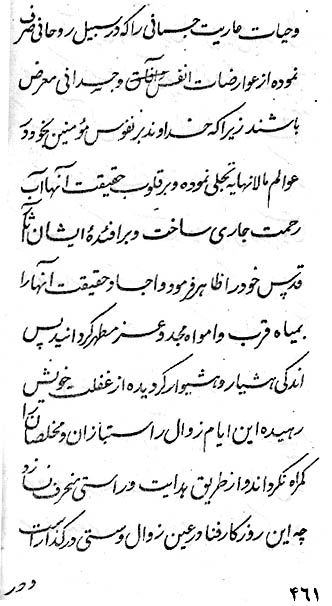 وحیات عاریت جسمانی را که در سبیل روحانی صرف
نموده از عوارضات انفس وآفاق و جدانی معرض
باشند زیرا که خداوند بر نفوس مؤمنین بخود در
عوالم مالانهایه تجلی نموده و بر قلوب حقیقت آنها آب
رحمت جاری ساخت و بر افئدهٔ ایشان
قدس خود را ظاهر فرمود و اجساد حقیقت آنها را
بمیاه قرب و امواه مجد و عز مطهر گردانید پس
اندکی هشیار و هشیوار گردیده از غفلت خویش
رهیده این ایام زوال راستبازان و مخلصان را
گمراه نکرداند و از طریق هدایت و راستی منحرف نسازد
چه این روزگار فنا در عین زوال و سستی در گذار است
۴۶۱